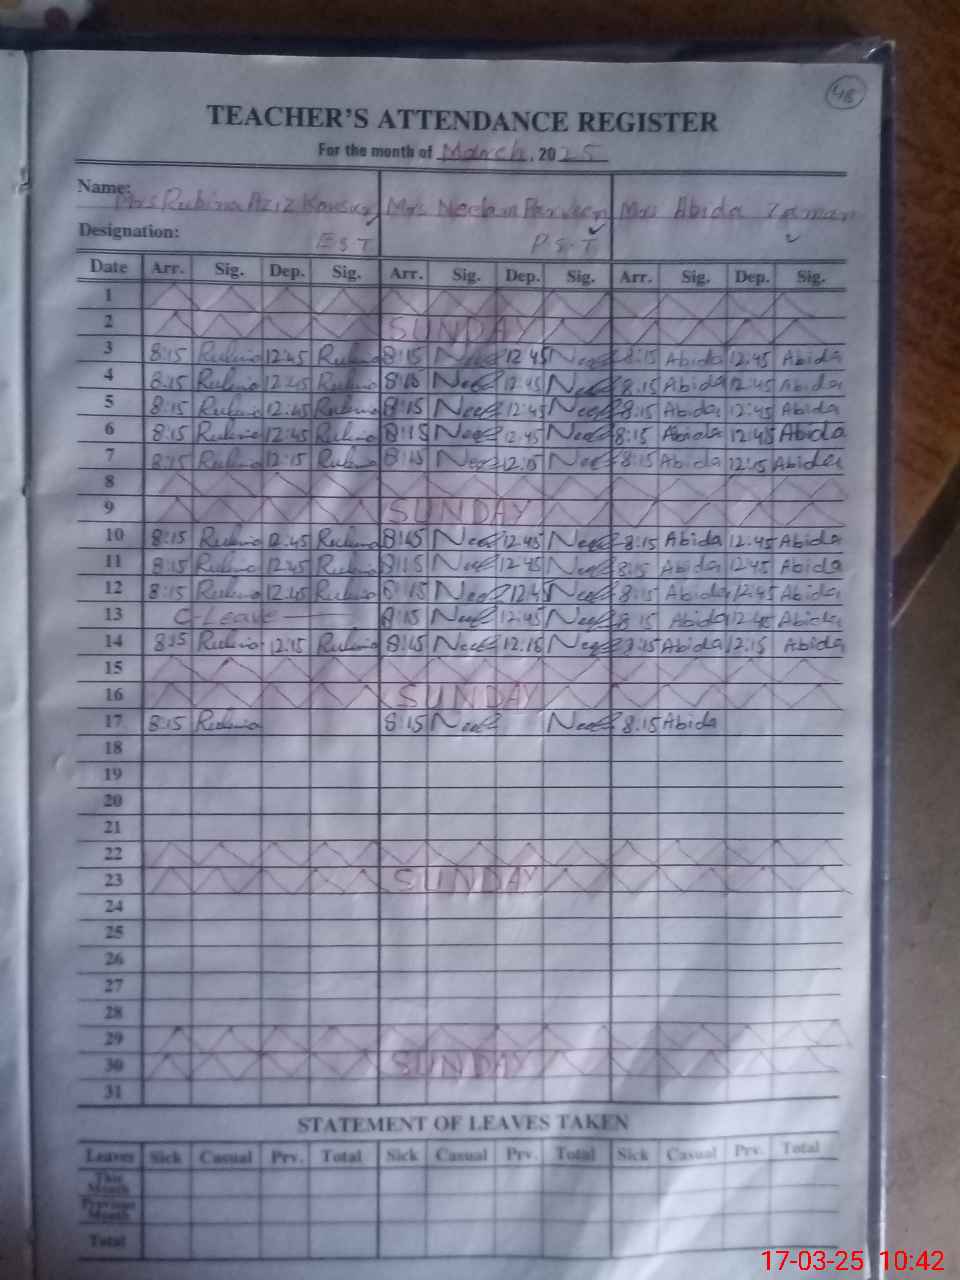 48
TEACHER'S ATTENDANCE REGISTER
For the month of March, 2025
Name: Mrs Rubina Aziz Kousar Mrs Neelam Parveen Mrs Abida Zaman
Designation: E.S.T P.S.T
Date Arr. Sig. Dep. Sig. Arr. Sig. Dep. Sig. Arr. Sig. Dep. Sig.
1
2 SUNDAY
3 8:15 Rubina 12:45 Rubina 8:15 12:45 8:15 Abida 12:45 Abida
4 8:15 Rubina 12:45 Rubina 8:15 12:45 8:15 Abida 12:45 Abida
5 8:15 Rubina 12:45 Rubina 8:15 12:45 8:15 Abida 12:45 Abida
6 8:15 Rubina 12:45 Rubina 8:15 12:45 8:15 Abida 12:45 Abida
7 8:15 Rubina 12:15 Rubina 8:15 12:15 8:15 Abida 12:15 Abida
8
9 SUNDAY
10 8:15 Rubina 12:45 Rubina 8:15 12:45 8:15 Abida 12:45 Abida
11 8:15 Rubina 12:45 Rubina 8:15 12:45 8:15 Abida 12:45 Abida
12 8:15 Rubina 12:45 Rubina 8:15 12:45 8:15 Abida 12:45 Abida
13 C-Leave 8:15 12:45 8:15 Abida 12:45 Abida
14 8:15 Rubina 12:15 Rubina 8:15 12:15 8:15 Abida 12:15 Abida
15
16 SUNDAY
17 8:15 Rubina 8:15 8:15 Abida
18
19
20
21
22
23 SUNDAY
24
25
26
27
28
29
30 SUNDAY
31
STATEMENT OF LEAVES TAKEN
Leaves Sick Casual Prv. Total Sick Casual Prv. Total Sick Casual Prv. Total
This Month
Previous Month
Total
17-03-25 10:42